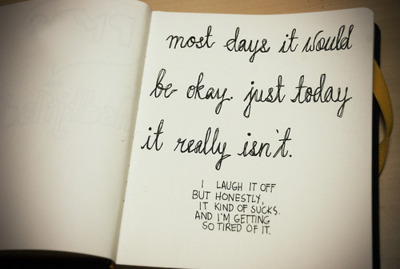 most days it would
be okay. just today
it really isn't.
I LAUGH IT OFF
BUT HONESTLY,
IT KIND OF SUCKS.
AND I'M GETTING
SO TIRED OF IT.